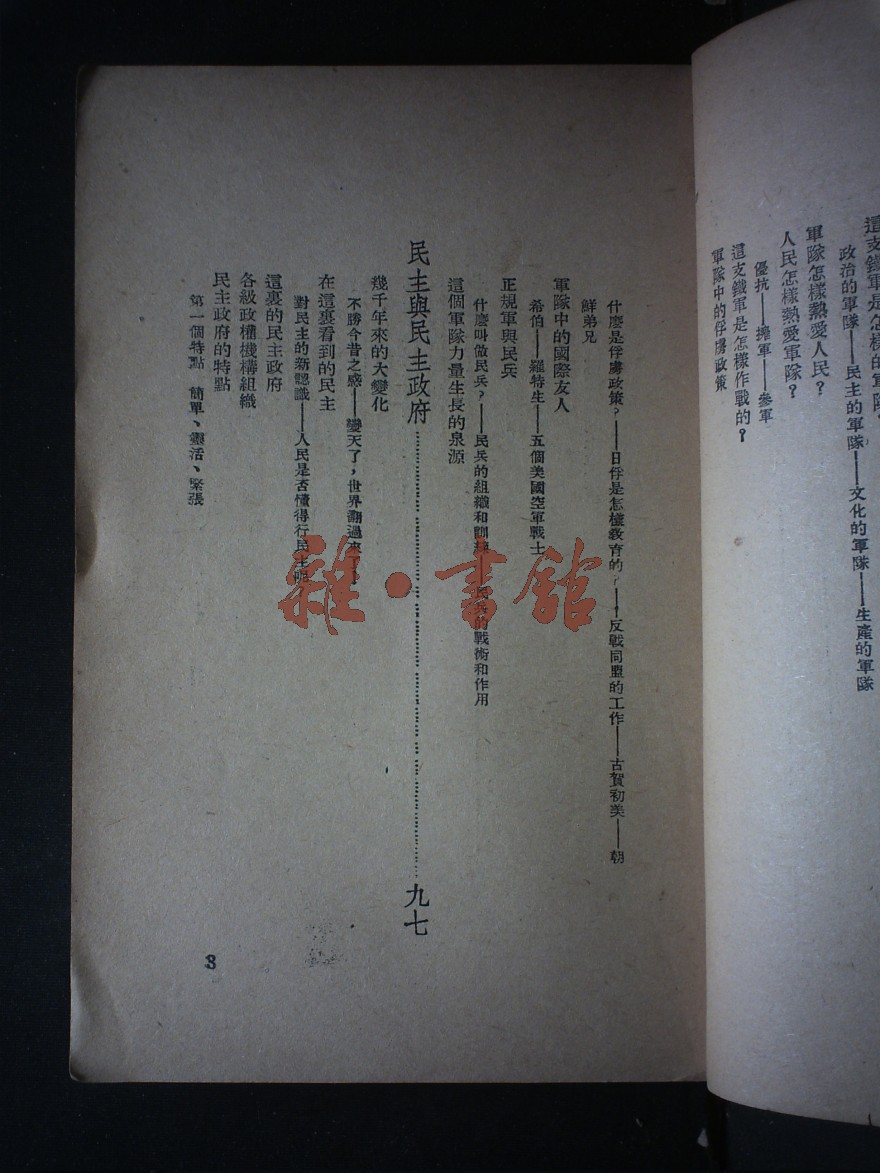 這支鐵軍是怎樣的軍隊？
政治的軍隊——民主的軍隊——文化的軍隊——生產的軍隊
軍隊怎樣熱愛人民？
人民怎樣熱愛軍隊？
優抗——擁軍——參軍
這支鐵軍是怎樣作戰的？
軍隊中的俘虜政策
什麽是俘虜政策？——日俘是怎樣敎育的？——反戰同盟的工作——古賀初美——朝
鮮弟兄
軍隊中的國際友人
希伯——羅特生——五個美國空軍戰士
正規軍與民兵
什麽叫做民兵？——民兵的組織和訓練——民兵的戰術和作用
這個軍隊力量生長的泉源
民主與民主政府……九七
幾千年來的大變化
不勝今昔之感——變天了，世界翻過來了
在這裏看到的民主
對民主的新認識——人民是否懂得行民主
這裏的民主政府
各級政權機構組織
民主政府的特點
第一個特點　簡單、靈活、緊張
3
雜·書館